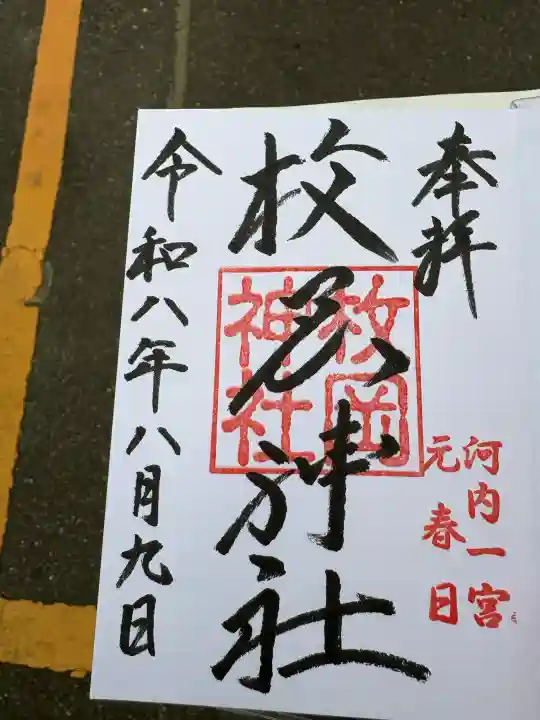 奉拝
河内一宮
元春日
枚岡神社
枚岡神社
令和八年八月九日